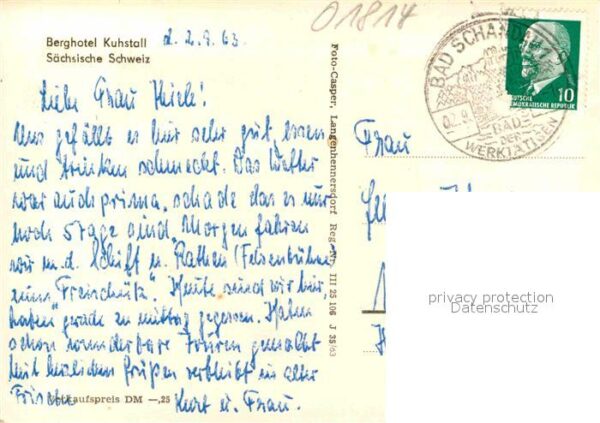 O1814
Berghotel Kuhstall
Sächsische Schweiz
d. 2.9.63.
Liebe Frau Thiele!
Uns gefällt es hier sehr gut, essen
und trinken schmeckt. Das Wetter
war auch prima, schade das es nur
noch 5 Tage sind. Morgen fahren
wir m. d. Schiff n. Rathen (Felsenbühne
zum "Freischütz". Heute sind wir hier
haben gerade zu mittag gegessen. Haben
schon wunderbare Touren gemacht
Mit herzlichen Grüßen verbleibt in alter
Frische Kurt u. Frau.
Verkaufspreis DM —,25
Foto-Casper, Langenhennersdorf Reg.-Nr. III 25 106 J 35/63
BAD SCHANDAU
02.9
BAD
DER
WERKTÄTIGEN
10
DEUTSCHE
DEMOKRATISCHE REPUBLIK
Frau
privacy protection
Datenschutz